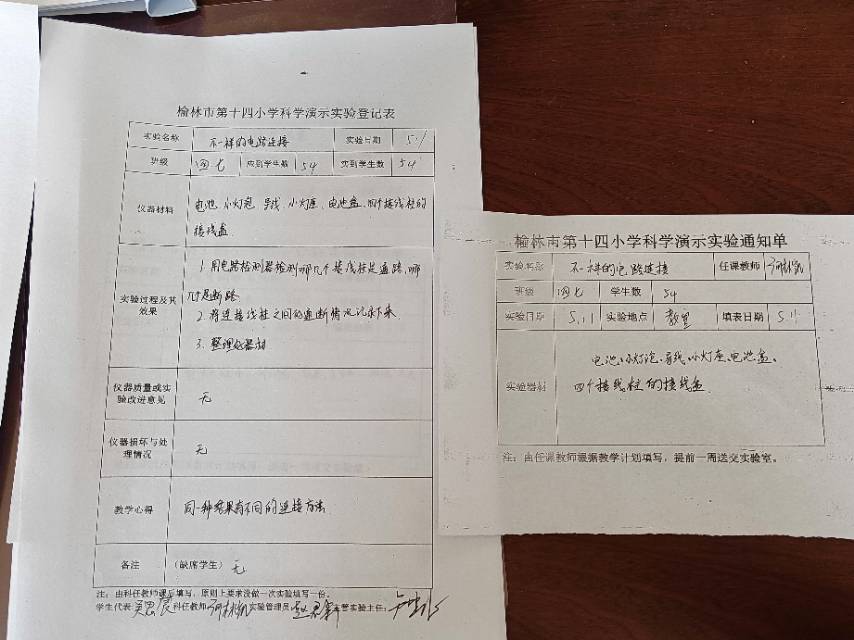 榆林市第十四小学科学演示实验登记表
实验名称 不一样的电路连接 实验日期 5.1
班级 四七 应到学生数 54 实到学生数 54
仪器材料
电池、小灯泡、导线、小灯座、电池盒、四个接线柱的
接线盒
实验过程及其
效果
1. 用电路检测器检测哪几个接线柱是通路,哪
几个是断路.
2. 将连接线柱之间的通断情况记录下来.
3. 整理仪器材
仪器质量或实
验改进意见
无
仪器损坏与处
理情况
无
教学心得 同一种结果有不同的连接方法
备注 (缺席学生) 无
注:由科任教师课后填写,原则上要求没做一次实验填写一份。
学生代表: 科任教师: 实验管理员: 主管实验主任:
榆林市第十四小学科学演示实验通知单
实验名称 不一样的电路连接 任课教师
班级 四七 学生数 54
实验日期 5.11 实验地点 教室 填表日期 5.1
实验器材
电池、小灯泡、导线、小灯座、电池盒、
四个接线柱的接线盒
注:由任课教师根据教学计划填写,提前一周送交实验室。